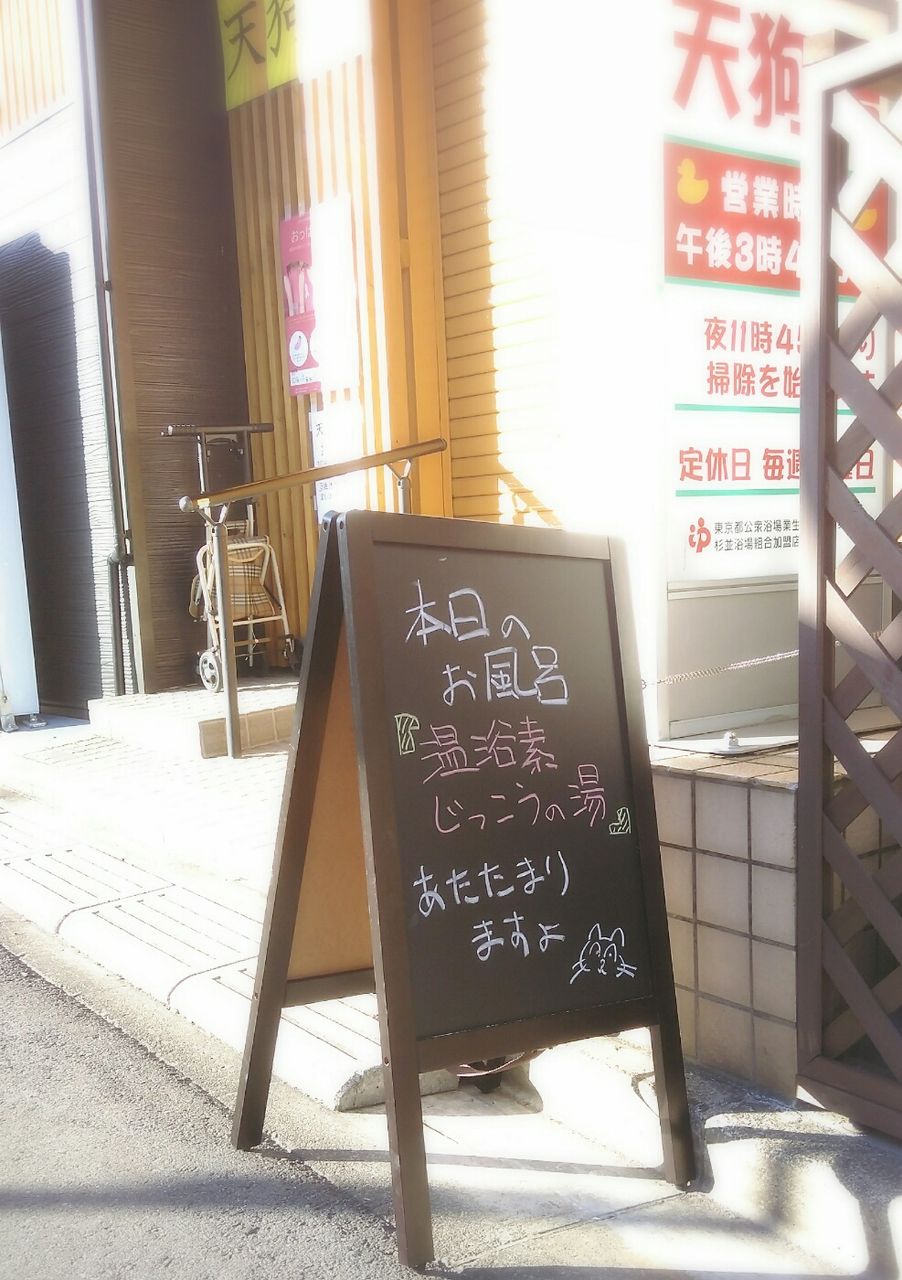 天狗
天狗
営業時
午後3時4
夜11時45
掃除を始
定休日 毎週
日
ゆ
東京都公衆浴場業生
杉並浴場組合加盟店
本日の
お風呂
『温浴素
じっこうの湯』
あたたまり
ますよ